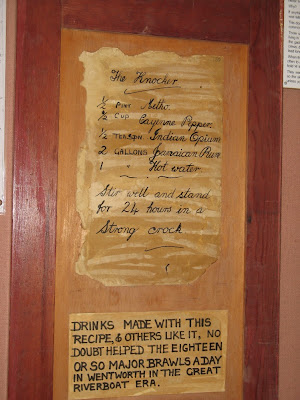 The Knocker
½ PINT Metho.
½ CUP Cayenne Pepper.
½ TEASPN Indian Opium
2 GALLONS Jamaican Rum.
1 " Hot water.
Stir well and stand
for 24 hours in a
Strong crock
DRINKS MADE WITH THIS
RECIPE, & OTHERS LIKE IT, NO
DOUBT HELPED THE EIGHTEEN
OR SO MAJOR BRAWLS A DAY
IN WENTWORTH IN THE GREAT
RIVERBOAT ERA.